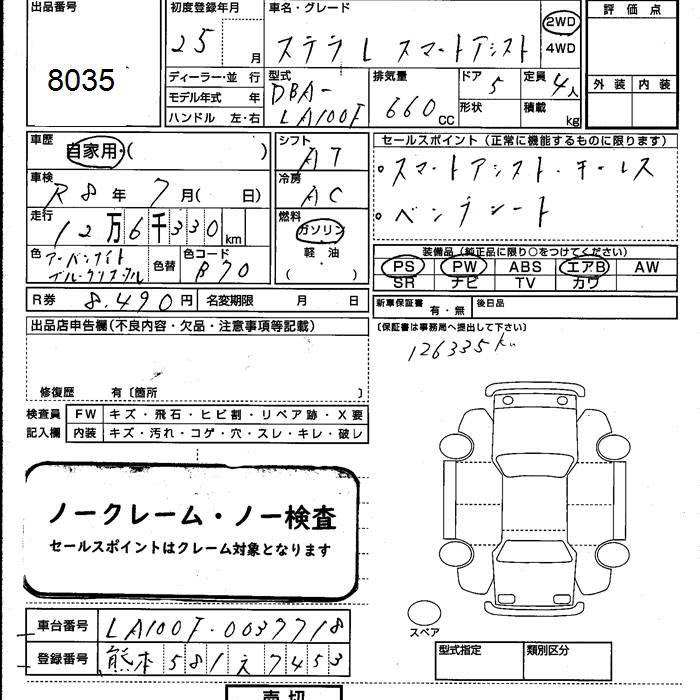 出品番号
8035
初度登録年月
25 月
車名・グレード
ステラ L スマートアシスト
2WD
4WD
評価点
外装 内装
ディーラー・並 行
モデル年式 年
ハンドル 左・右
型式
DBA-
LA100F
排気量
660 CC
ドア
5
形状
定員
4人
積載
kg
車歴
自家用・( )
車検
R8年 7月( 日)
走行
12万6千330km
色
アーバンナイト
ブルークリスタル
色替
色コード
B70
シフト
AT
冷房
AC
燃料
ガソリン
軽油
( )
セールスポイント (正常に機能するものに限ります)
・スマートアシスト・キーレス
・ベンチシート
装備品(純正品に限り○をつけてください)
PS PW ABS エアB AW
SR ナビ TV カワ
R券 8,490円 名変期限 月 日
新車保証書 有・無 後日品
(保証書は事務局へ提出して下さい)
126335km
出品店申告欄(不良内容・欠品・注意事項等記載)
修復歴 有〔箇所 〕
検査員
記入欄
FW キズ・飛石・ヒビ割・リペア跡・X要
内装 キズ・汚れ・コゲ・穴・スレ・キレ・破レ
ノークレーム・ノー検査
セールスポイントはクレーム対象となります
スペア
車台番号 LA100F-0037718
登録番号 熊本581え7453
型式指定 類別区分
売切